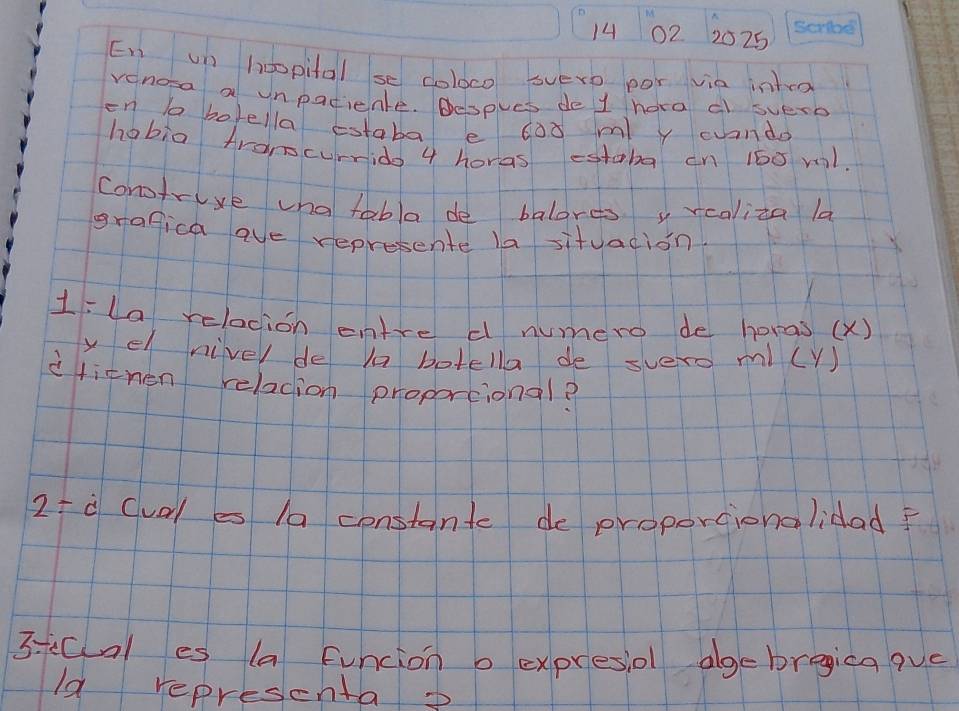 D M A
14 02 2025 Scribe
En un hospital se coloco suero por via intra
venosa a un paciente. Despues de 1 hora el suero
en la botella estaba e 600 ml y cuando
habia transcurrido 4 horas estaba en 150 ml.
Construye una tabla de balores y realiza la
grafica que represente la situación.
1= La relación entre el numero de horas (x)
y el nivel de la botella de suero ml (Y)
¿tienen relacion proporcional?
2= ¿Cual es la constante de proporcionalidad?
3=¿Cual es la función o expresiol algebragica que
la representa?